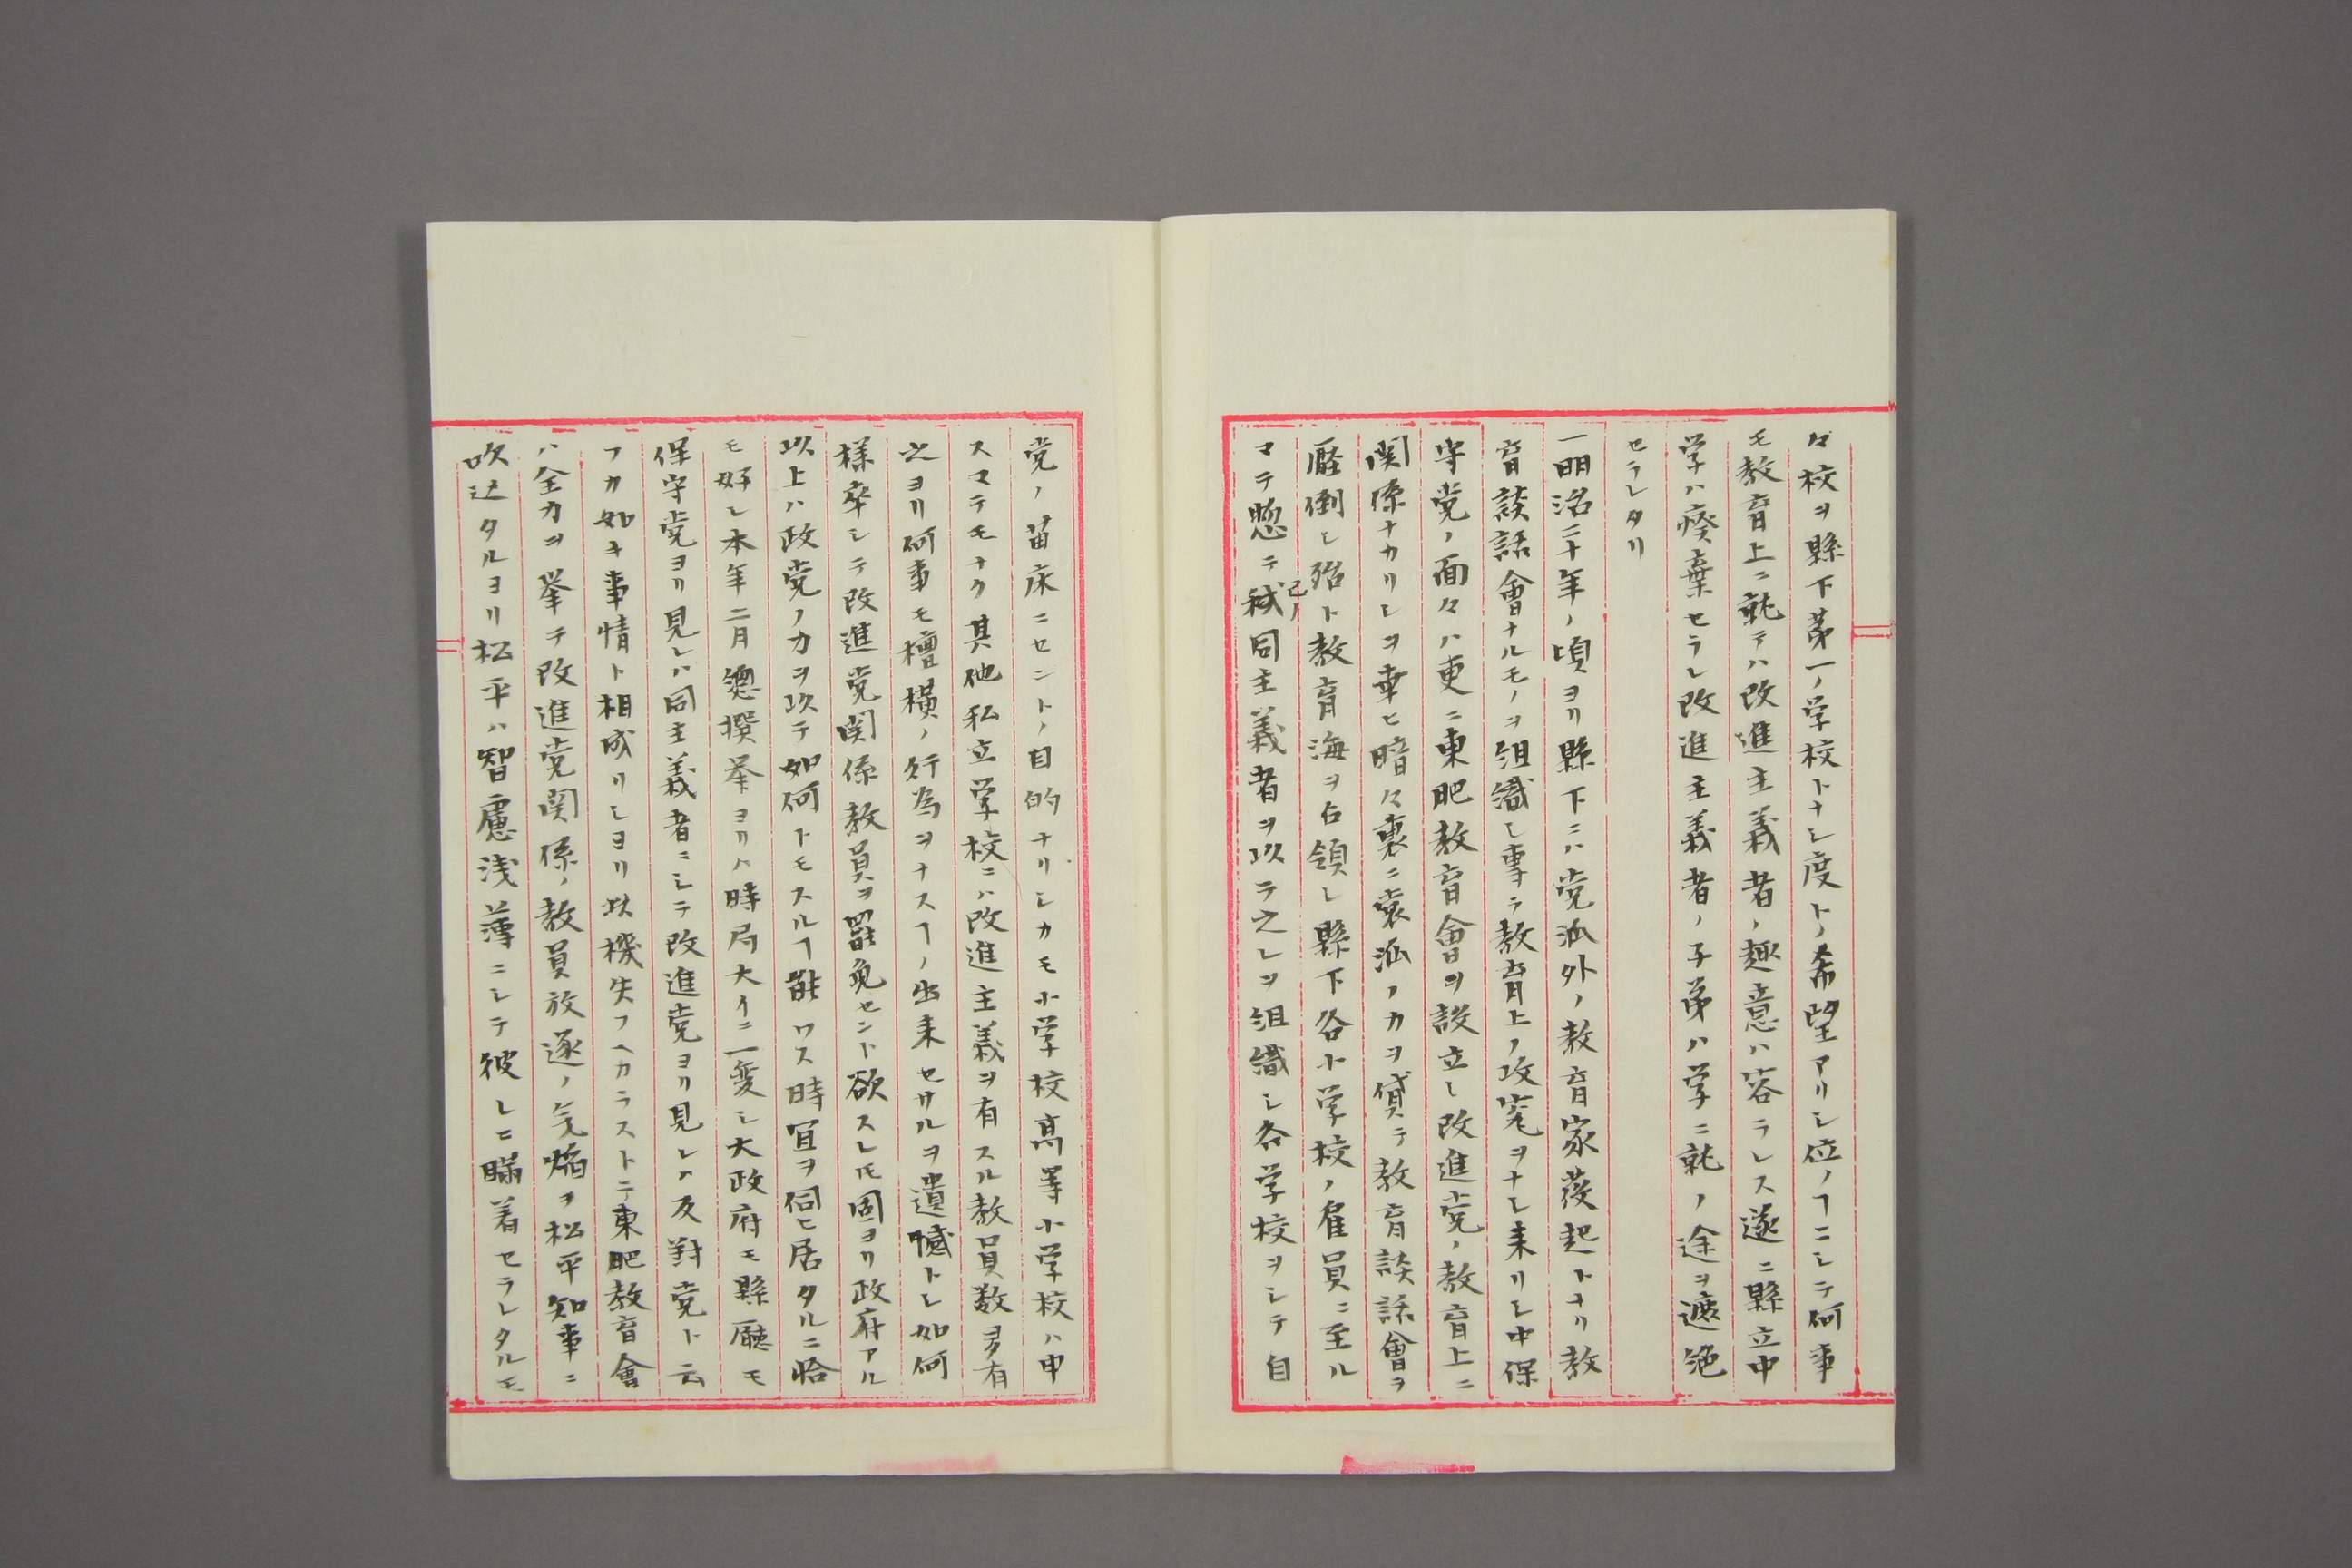 々校ヲ縣下第一ノ学校トナシ度トノ希望アリシ位ノヿニシテ何事
モ教育上ニ就テハ改進主義者ノ趣意ハ容ラレス遂ニ縣立中
学ハ癈棄セラレ改進主義者ノ子弟ハ学ニ就ノ途ヲ遮絶
セラレタリ
一明治二十年ノ頃ヨリ縣下ニハ党派外ノ教育家発起トナリ教
育談話會ナルモノヲ組織シ専ラ教育上ノ攻究ヲナシ来リシ中保
守党ノ面々ハ更ニ東肥教育會ヲ設立シ改進党ノ教育上ニ
関係ナカリシヲ幸ヒ暗々裏ニ袁派ノカヲ貸テ教育談話會ヲ
圧倒シ殆ト教育海ヲ占領シ縣下各小学校ノ雇員ニ至ル
マテ惣テ己ノ同主義者ヲ以テ之レヲ組織シ各学校ヲシテ自
党ノ苗床ニセントノ目的ナリシカモ小学校高等小学校ハ申
スマテモナク其他私立学校ニハ改進主義ヲ有スル教員数多有
之ヨリ何事モ檀横ノ行為ヲナスヿノ出来セサルヲ遺憾トシ如何
様卒シテ改進党関係教員ヲ罷免セント欲スレ𪜈固ヨリ政府アル
以上ハ政党ノカヲ以テ如何トモスルヿ能ワス時宜ヲ伺ヒ居タルニ恰
モ好シ本年二月總撰挙ヨリハ時局大イニ一変シ大政府モ縣廳モ
保守党ヨリ見レハ同主義者ニシテ改進党ヨリ見レハ反對党ト云
フカ如キ事情ト相成リシヨリ此機失フヘカラストテ東肥教育會
ハ全力ヲ挙テ改進党関係ノ教員放逐ノ気焔ヲ松平知事ニ
吹込タルヨリ松平ハ智慮浅薄ニシテ彼レニ瞞着セラレタルモ